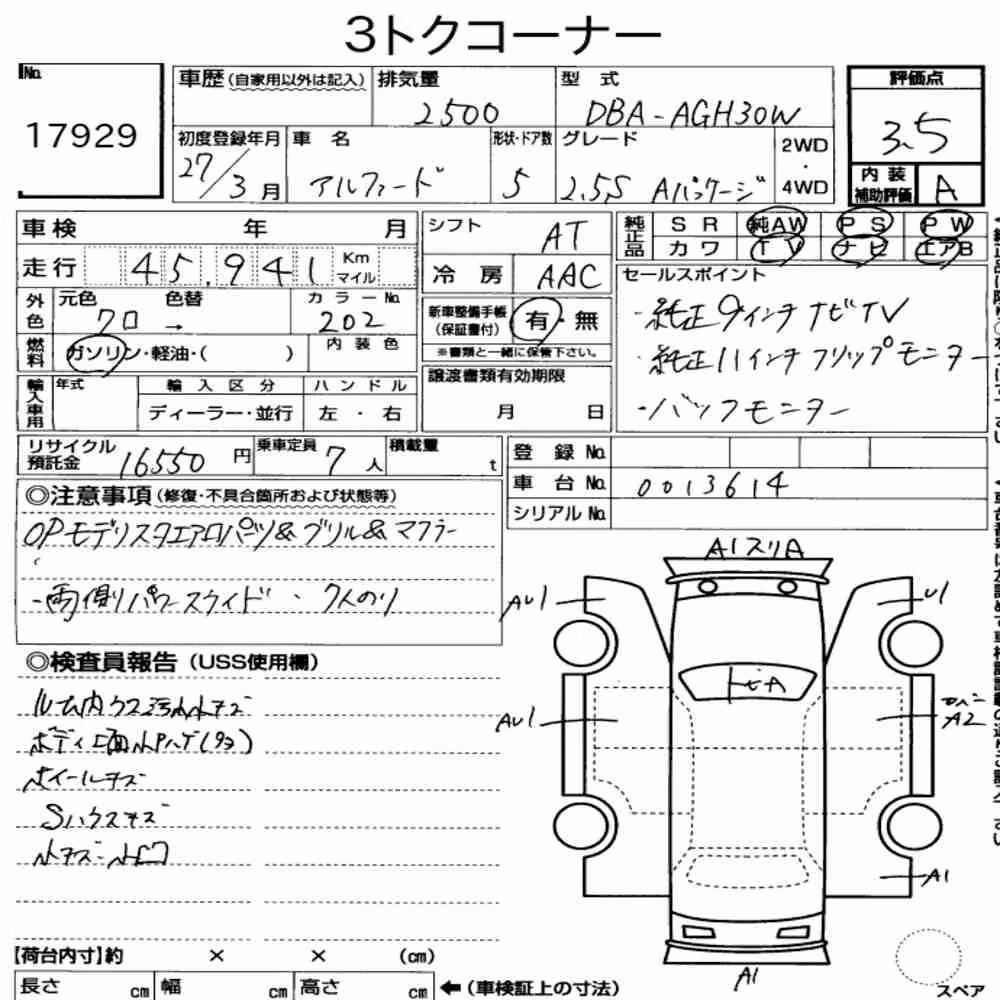 3トクコーナー
No.
17929
車歴(自家用以外は記入)
排気量
2500
型 式
DBA-AGH30W
評価点
3.5
内装補助評価 A
初度登録年月
27/3月
車 名
アルファード
形状・ドア数
5
グレード
2.5S Aパッケージ
2WD
・
4WD
車検 年 月
走行 45,941 Km マイル
シフト AT
冷 房 AAC
純正品 SR 純AW PS PW
カワ TV ナビ エアB
外色 元色 色替 カラーNo.
クロ → 202
燃料 ガソリン・軽油・( )
内装色
新車整備手帳
(保証書付)
有・無
※書類と一緒に保管下さい。
セールスポイント
・純正9インチナビTV
・純正11インチフリップモニター
・バックモニター
輸入車用 年式 輸入区分 ハンドル
ディーラー・並行 左・右
譲渡書類有効期限
月 日
リサイクル預託金 16550円
乗車定員 7人
積載量 t
登 録 No.
車 台 No. 0013614
シリアル No.
◎注意事項(修復・不具合箇所および状態等)
OPモデリスタエアロパーツ&グリル&マフラー
・両側パワースライド ・7人のり
◎検査員報告(USS使用欄)
ルーム内
ホイールキズ
Sハウスキズ
A1 スリA
AU1
U1
トビA
AU1
A2
A1
A1
【荷台内寸】約 × × (cm)
長さ cm 幅 cm 高さ cm
←(車検証上の寸法)
スペア